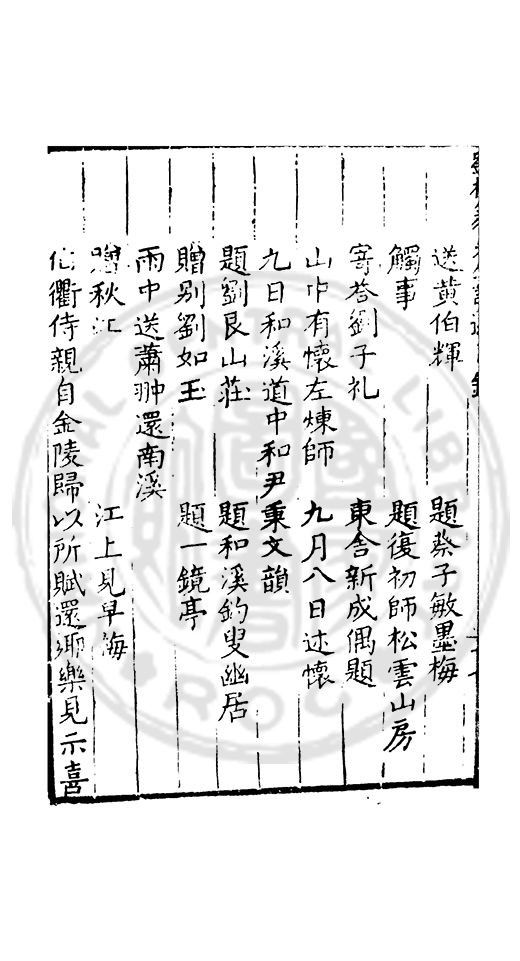 送黄伯輝　題蔡子敏墨梅
觸事　題復初師松雲山房
寄答劉子礼　東舎新成偶題
山中有懷左煉師　九月八日述懷
九日和溪道中和尹秉文韻
題劉艮山莊　題和溪釣叟幽居
贈别劉如玉　題一鏡亭
雨中送蕭翀還南溪
秋江　江上見早梅
衢侍親自金陵歸以所賦還鄉樂見示喜